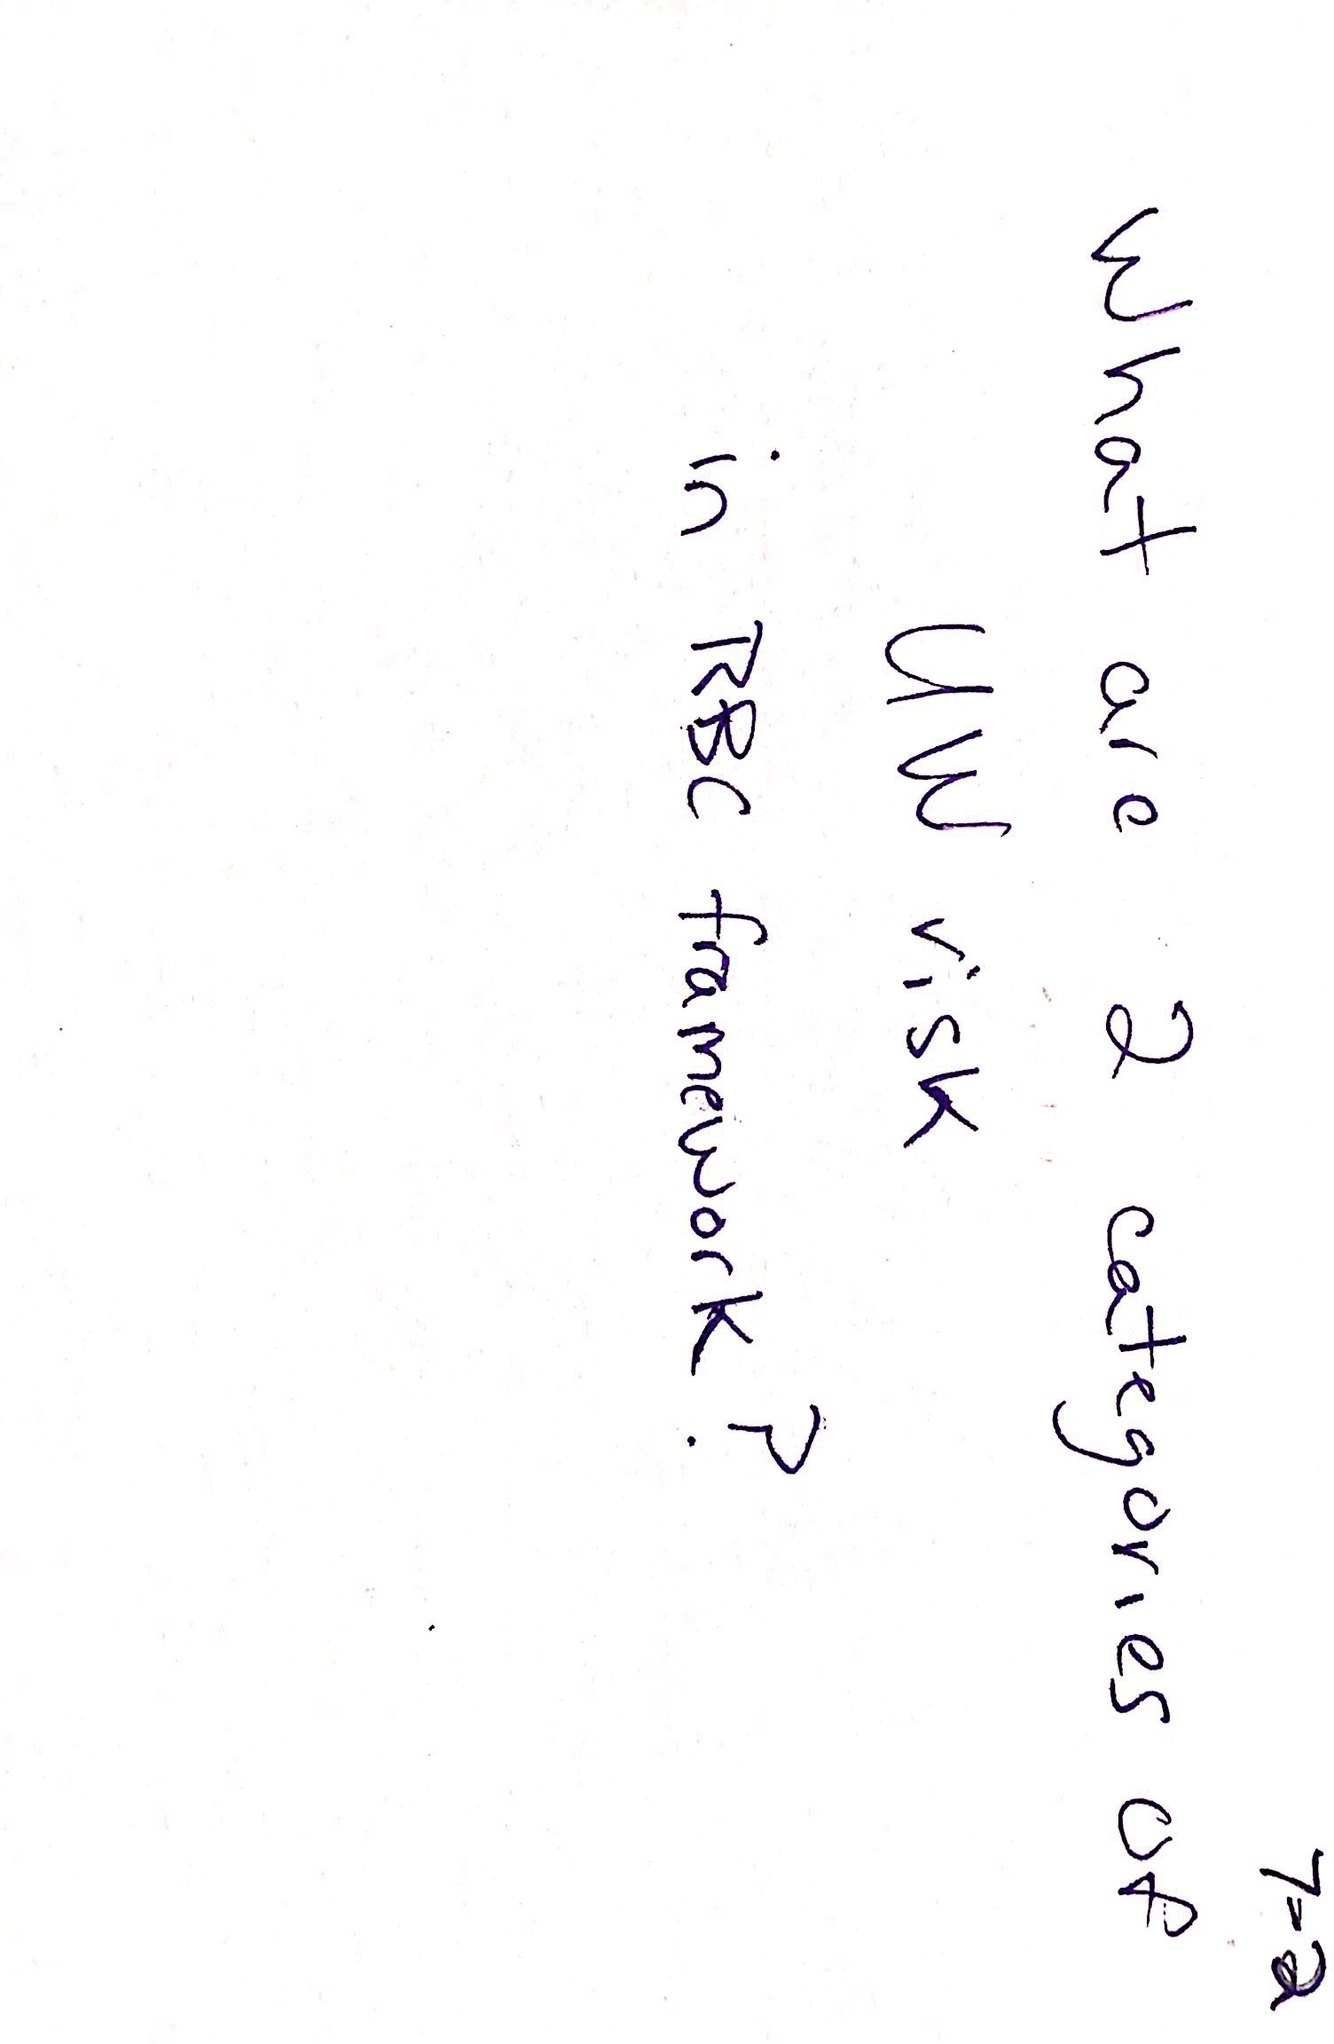 7-2
What are 2 categories of
UW risk
in RBC framework?